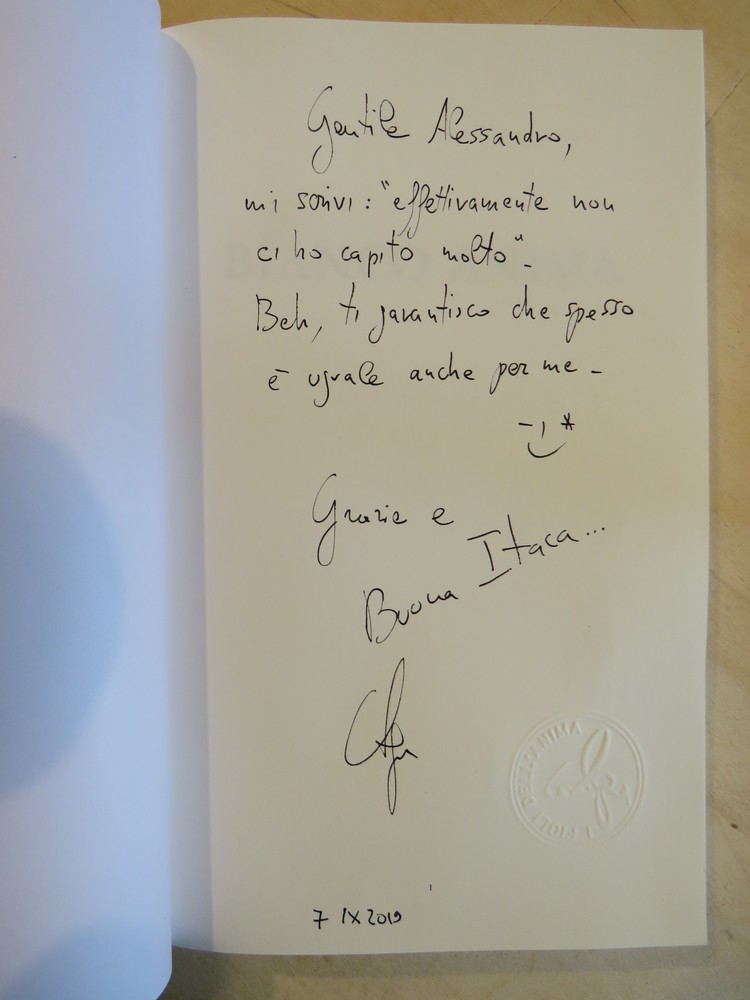 Gentile Alessandro,
mi scrivi: "effettivamente non
ci ho capito molto".
Beh, ti garantisco che spesso
è uguale anche per me –
Grazie e
Buona Itaca...
I FIGLI DELL'ANIMA
1
7 IX 2019